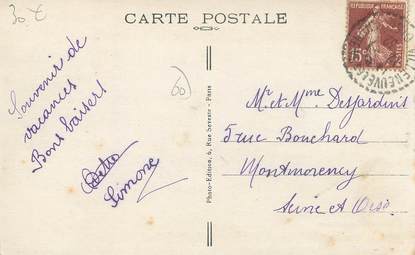 30 €
CARTE POSTALE
REPUBLIQUE FRANÇAISE
15c
POSTES
60
Souvenir de
vacances
Bons baisers
Simone
Photo-Edition, 6, Rue Servoin - Paris
Mr et Mme Desjardins
5 rue Bouchard
Montmorency
Seine et Oise